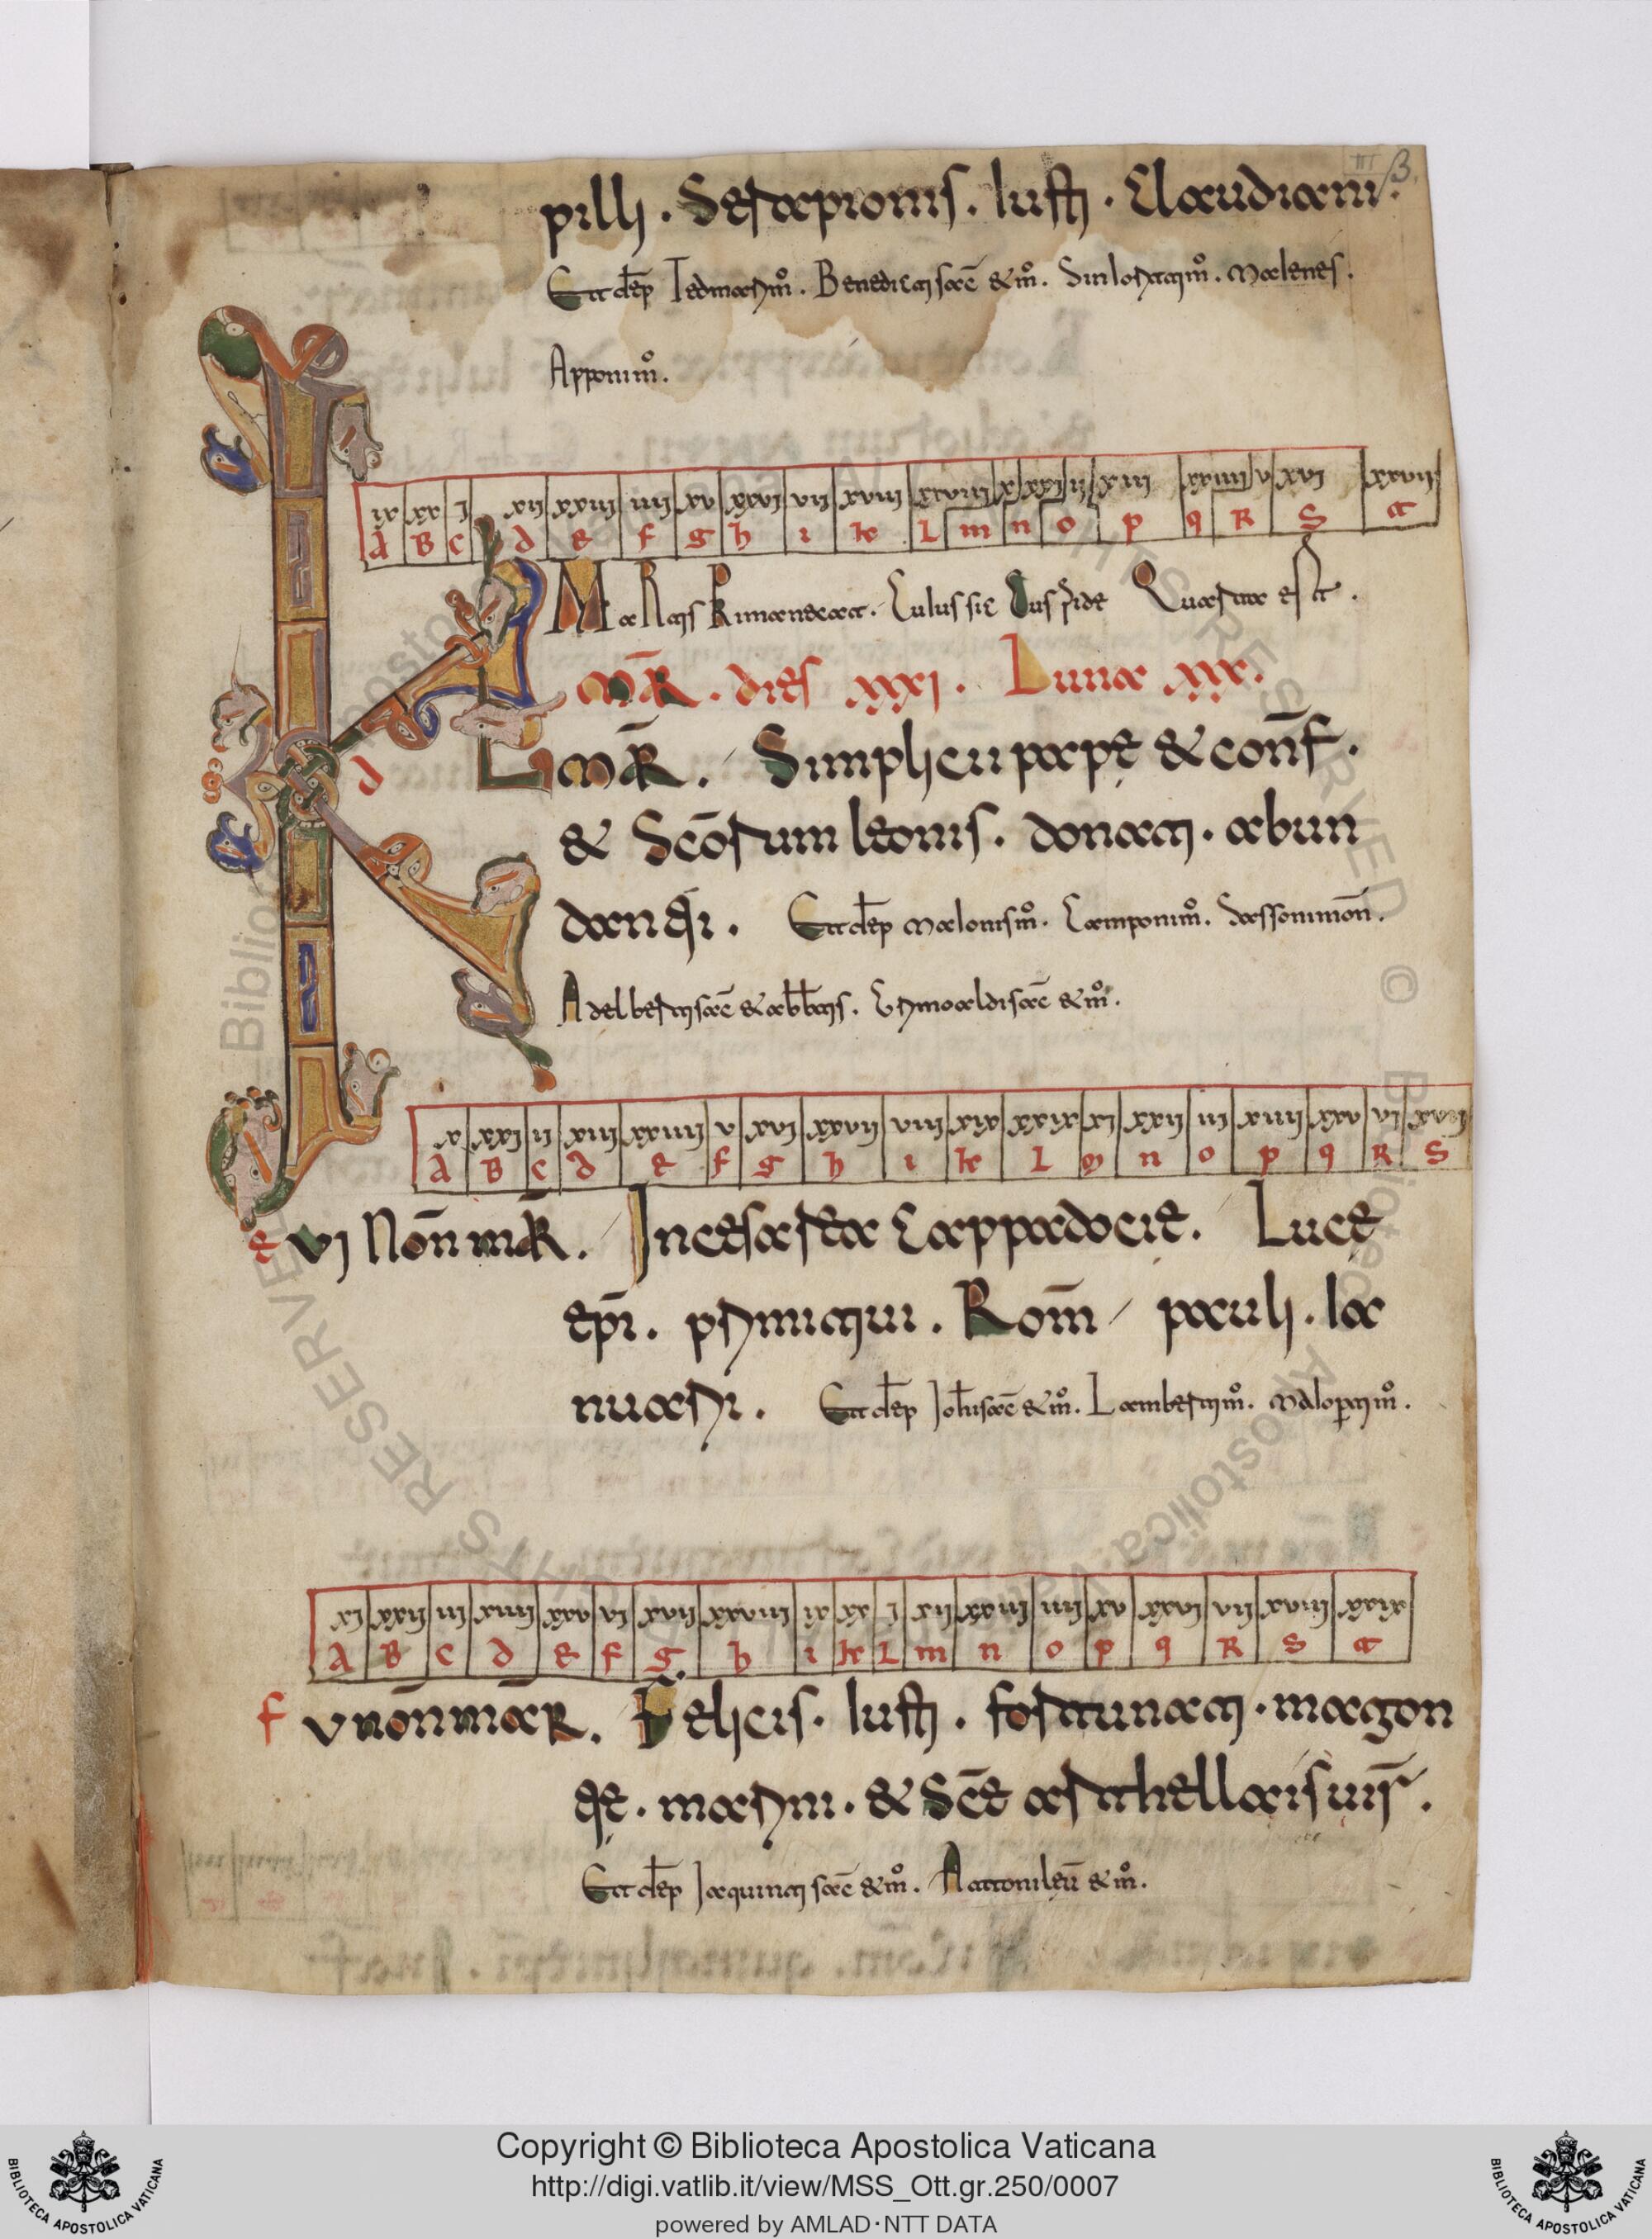 pilli. Serapionis. Iusti. Claudiani.
Et dep̄ Iedmari m̊. Benedicti sac̄ & m̊. Sinlorici m̊. Malenes.
Apponi m̊.
ix xx I xii xxiii iiii xv xxvi vii xviii xxviiii x xxi ii xiii xxiiii v xvi xxvii
A B C d e f g h i k L m n o p q R S t
Martis Cuius sic cuspide est.
MAR̄. dies xxxi. Luna xxx.
d MAR̄. Simplicii pape & conf̄.
& Sc̄orum leonis. donati. abun
danti. Et dep̄ Malonis m̊. Camponi m̊. dassoni mon̄.
Adelberti sac̄ & abb̄tis. Grimoaldi sac̄ & m̊.
x xxi ii xiii xxiiii v xvi xxvii viii xix xxix xi xxii iii xiiii xxv vi xvii
A B C d e f g h i k L m n o p q R S
e vi Non̄ mar̄. In cesarea Cappadocie. Luce
ep̄i. primitiui. Rom̄ pauli. Ia
nuarii. Et dep̄ Ioh̄is sac̄ & m̊. Lamberti m̊. m̊.
xi xxii iii xiiii xxv vi xvii xxviii ix xx I xii xxiii iiii xv xxvi vii xviii xxix
A B C d e f g h i k L m n o p q R S t
f v non̄ mar̄. Felicis. Iusti. fortunati. magon
tie. marini. & Sc̄e arthellais uir̄.
Et dep̄ Iaquinti sac̄ & m̊. Attoni leu̅ & m̊.
Copyright © Biblioteca Apostolica Vaticana
http://digi.vatlib.it/view/MSS_Ott.gr.250/0007
powered by AMLAD·NTT DATA
BIBLIOTECA APOSTOLICA VATICANA
BIBLIOTECA APOSTOLICA VATICANA